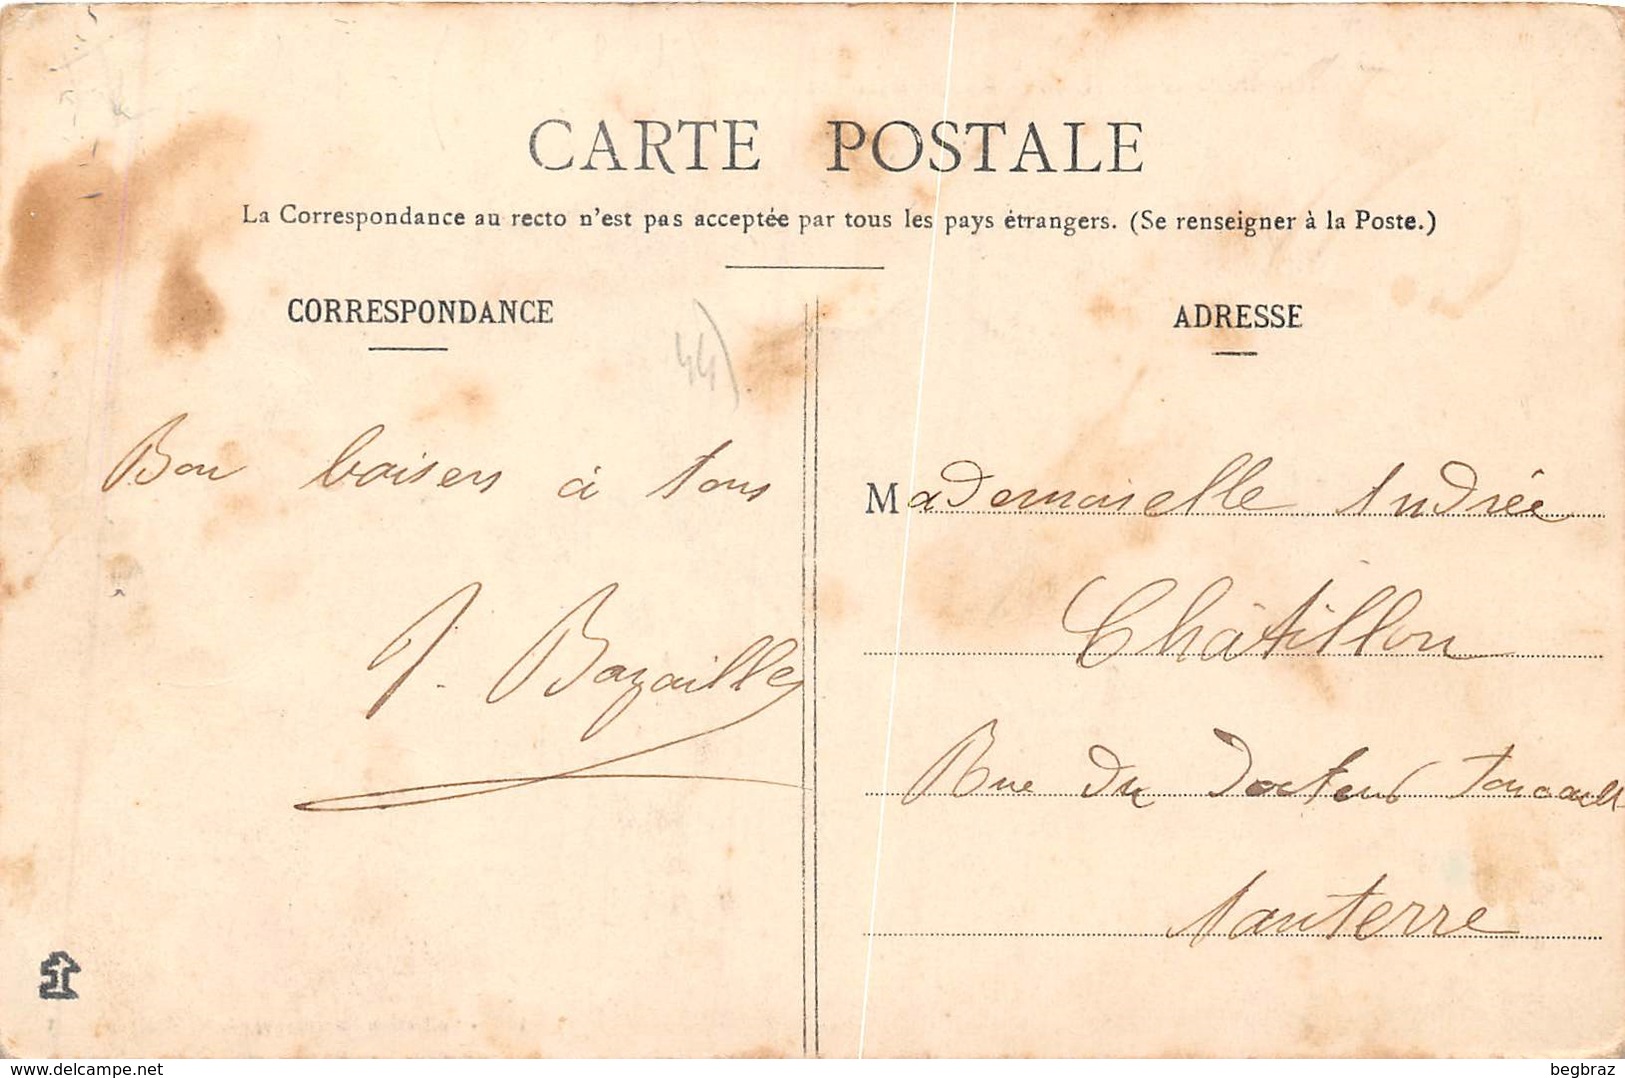 CARTE POSTALE
La Correspondance au recto n'est pas acceptée par tous les pays étrangers. (Se renseigner à la Poste.)
CORRESPONDANCE
44)
Bon baisers à tous
J. Bazailles
ADRESSE
Mademoiselle Andrée
Châtillon
Rue du Docteur
Nanterre
delcampe.net
begbraz